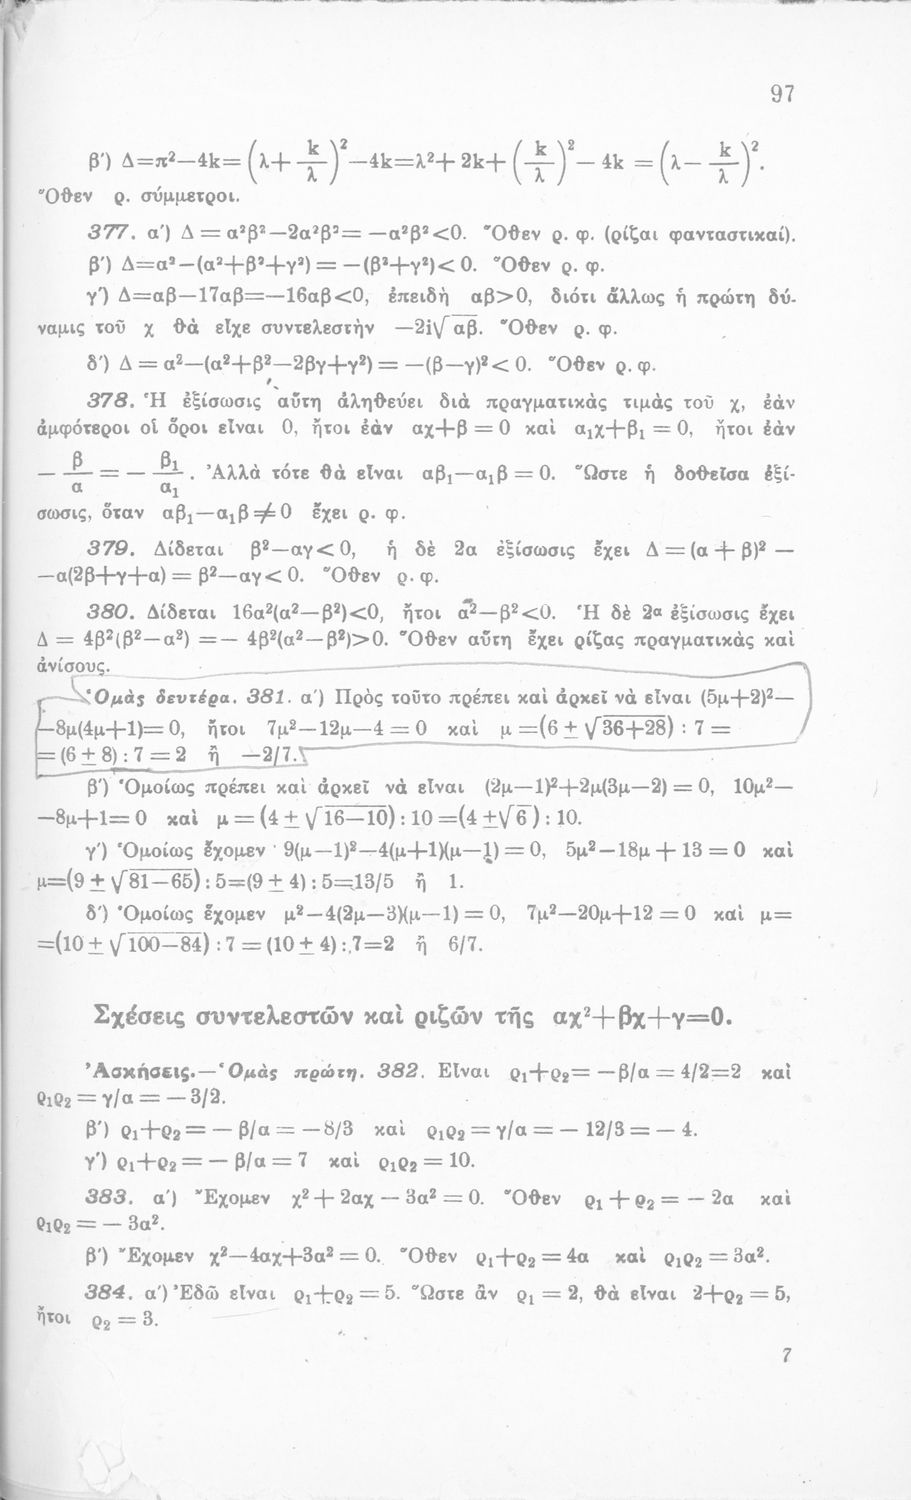 97
β') Δ=π²—4k= (λ+ k/λ)²—4k=λ²+ 2k+ (k/λ)²— 4k = (λ— k/λ)².
Ὅθεν ρ. σύμμετροι.
377. α') Δ = α²β²—2α²β²= —α²β²<0. Ὅθεν ρ. φ. (ρίζαι φανταστικαί).
β') Δ=α²—(α²+β²+γ²) = —(β²+γ²)< 0. Ὅθεν ρ. φ.
γ') Δ=αβ—17αβ=—16αβ<0, ἐπειδὴ αβ>0, διότι ἄλλως ἡ πρώτη δύ-
ναμις τοῦ χ θὰ εἶχε συντελεστὴν —2i√αβ. Ὅθεν ρ. φ.
δ') Δ = α²—(α²+β²—2βγ+γ²) = —(β—γ)²< 0. Ὅθεν ρ. φ.
378. Ἡ ἐξίσωσις αὕτη ἀληθεύει διὰ πραγματικὰς τιμὰς τοῦ χ, ἐὰν
ἀμφότεροι οἱ ὅροι εἶναι 0, ἤτοι ἐὰν αχ+β = 0 καὶ α₁χ+β₁ = 0, ἤτοι ἐὰν
— β/α = — β₁/α₁. Ἀλλὰ τότε θὰ εἶναι αβ₁—α₁β = 0. Ὥστε ἡ δοθεῖσα ἐξί-
σωσις, ὅταν αβ₁—α₁β ≠ 0 ἔχει ρ. φ.
379. Δίδεται β²—αγ< 0, ἡ δὲ 2α ἐξίσωσις ἔχει Δ = (α + β)² —
—α(2β+γ+α) = β²—αγ< 0. Ὅθεν ρ. φ.
380. Δίδεται 16α²(α²—β²)<0, ἤτοι α²—β²<0. Ἡ δὲ 2α ἐξίσωσις ἔχει
Δ = 4β²(β²—α²) =— 4β²(α²—β²)>0. Ὅθεν αὕτη ἔχει ρίζας πραγματικὰς καὶ
ἀνίσους.
Ὁμὰς δευτέρα. 381. α') Πρὸς τοῦτο πρέπει καὶ ἀρκεῖ νὰ εἶναι (5μ+2)²—
—8μ(4μ+1)= 0, ἤτοι 7μ²—12μ—4 = 0 καὶ μ =(6 ± √36+28) : 7 =
= (6 ± 8) : 7 = 2 ἢ —2/7.
β') Ὁμοίως πρέπει καὶ ἀρκεῖ νὰ εἶναι (2μ—1)²+2μ(3μ—2) = 0, 10μ²—
—8μ+1= 0 καὶ μ = (4 ± √16—10) : 10 =(4 ±√6) : 10.
γ') Ὁμοίως ἔχομεν 9(μ—1)²—4(μ+1)(μ—1) = 0, 5μ²—18μ + 13 = 0 καὶ
μ=(9 ± √81—65) : 5=(9 ± 4) : 5=13/5 ἢ 1.
δ') Ὁμοίως ἔχομεν μ²—4(2μ—3)(μ—1) = 0, 7μ²—20μ+12 = 0 καὶ μ=
=(10 ± √100—84) : 7 = (10 ± 4) : 7=2 ἢ 6/7.
Σχέσεις συντελεστῶν καὶ ριζῶν τῆς αχ²+βχ+γ=0.
Ἀσκήσεις.—Ὁμὰς πρώτη. 382. Εἶναι ρ₁+ρ₂= —β/α = 4/2=2 καὶ
ρ₁ρ₂ = γ/α = — 3/2.
β') ρ₁+ρ₂ = — β/α = —8/3 καὶ ρ₁ρ₂ = γ/α = — 12/3 = — 4.
γ') ρ₁+ρ₂ = — β/α = 7 καὶ ρ₁ρ₂ = 10.
383. α') Ἔχομεν χ² + 2αχ — 3α² = 0. Ὅθεν ρ₁ + ρ₂ = — 2α καὶ
ρ₁ρ₂ = — 3α².
β') Ἔχομεν χ²—4αχ+3α² = 0. Ὅθεν ρ₁+ρ₂ = 4α καὶ ρ₁ρ₂ = 3α².
384. α') Ἐδῶ εἶναι ρ₁+ρ₂ = 5. Ὥστε ἂν ρ₁ = 2, θὰ εἶναι 2+ρ₂ = 5,
ἤτοι ρ₂ = 3.
7